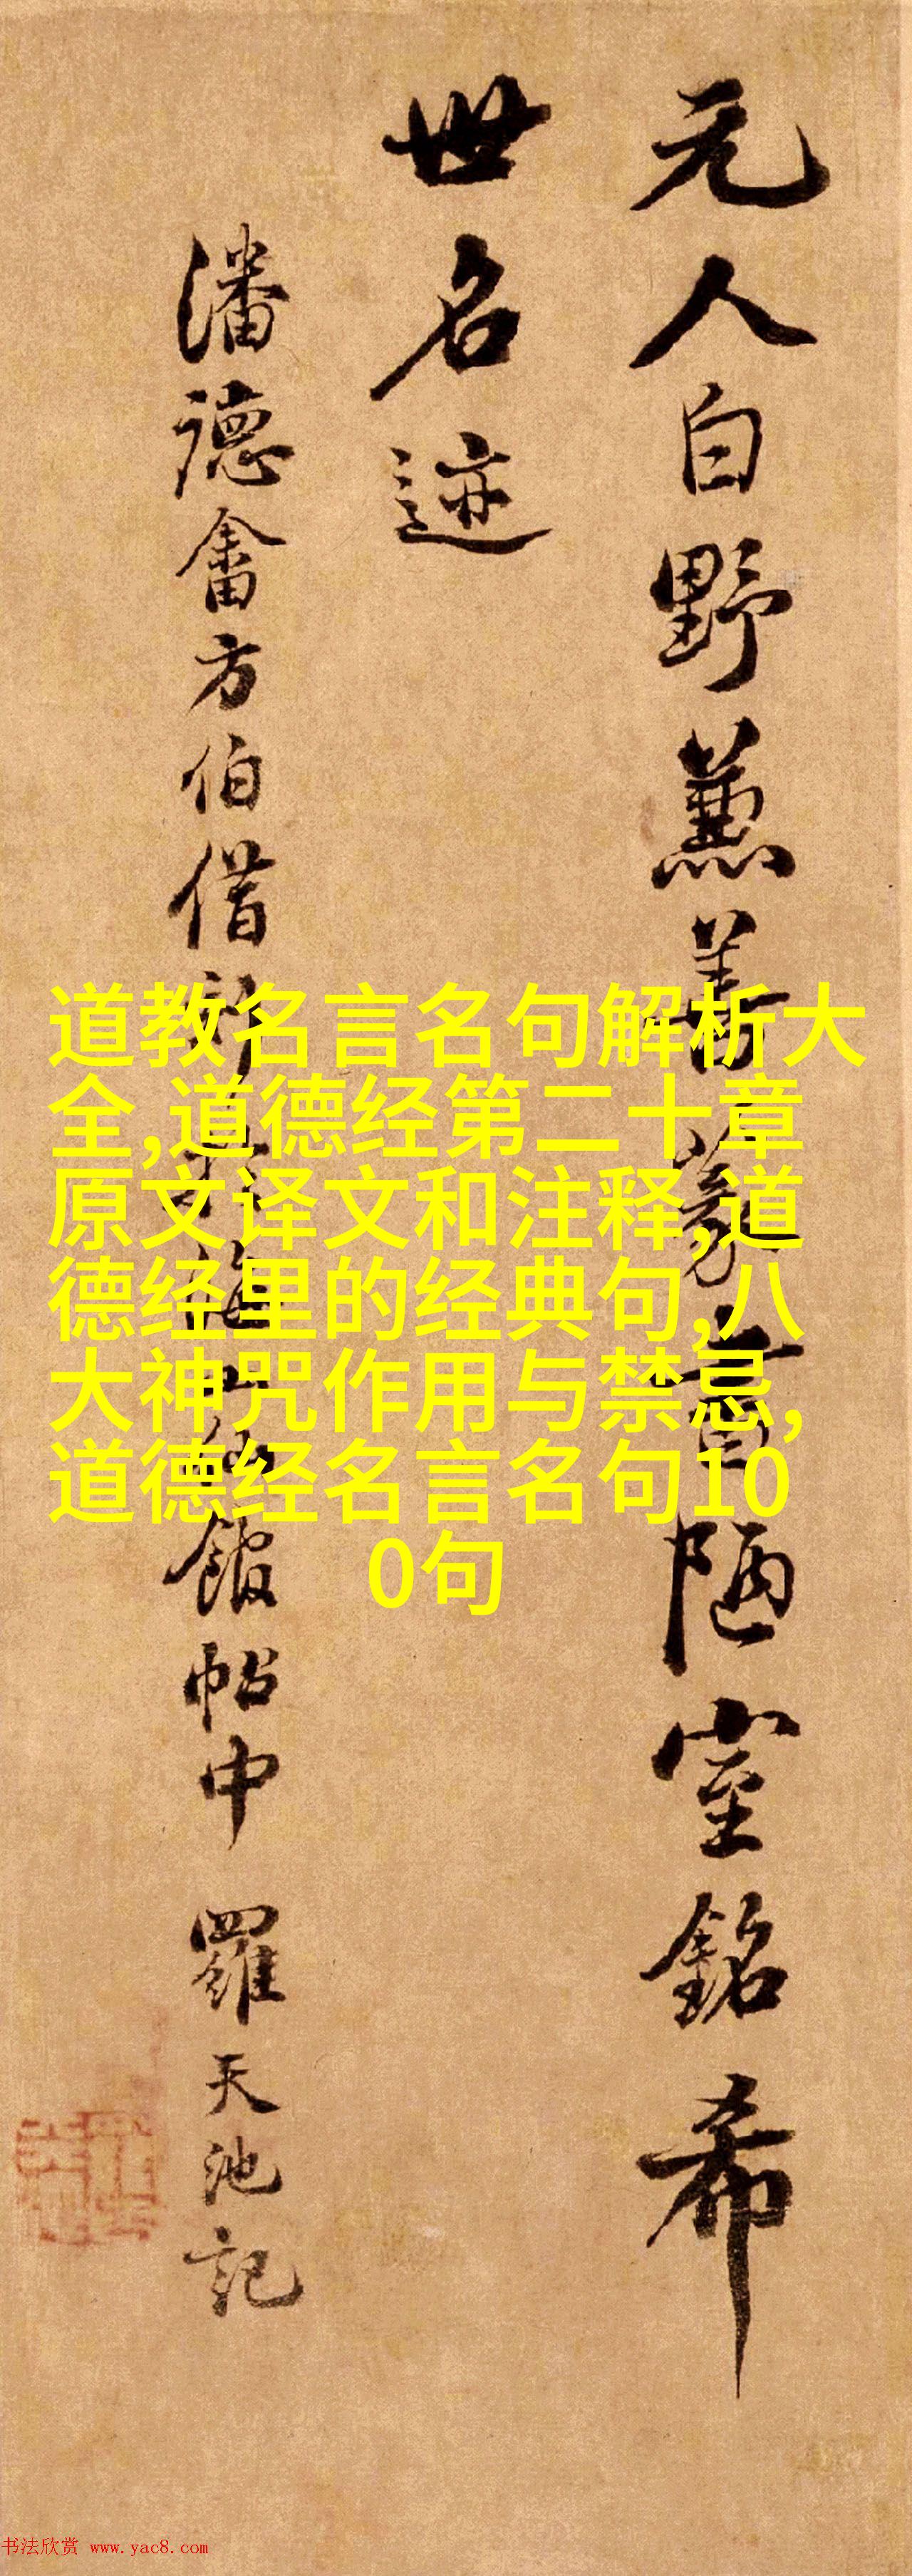 元人白野蕙善篆書陋室銘希
世名迹
潘德畬方伯借刻海山仙館帖中 羅天池記
道教名言名句解析大
全,道德经第二十章
原文译文和注释,道
德经里的经典句,八
大神咒作用与禁忌,
道德经名言名句10
0句
书法欣赏 www.yac8.com